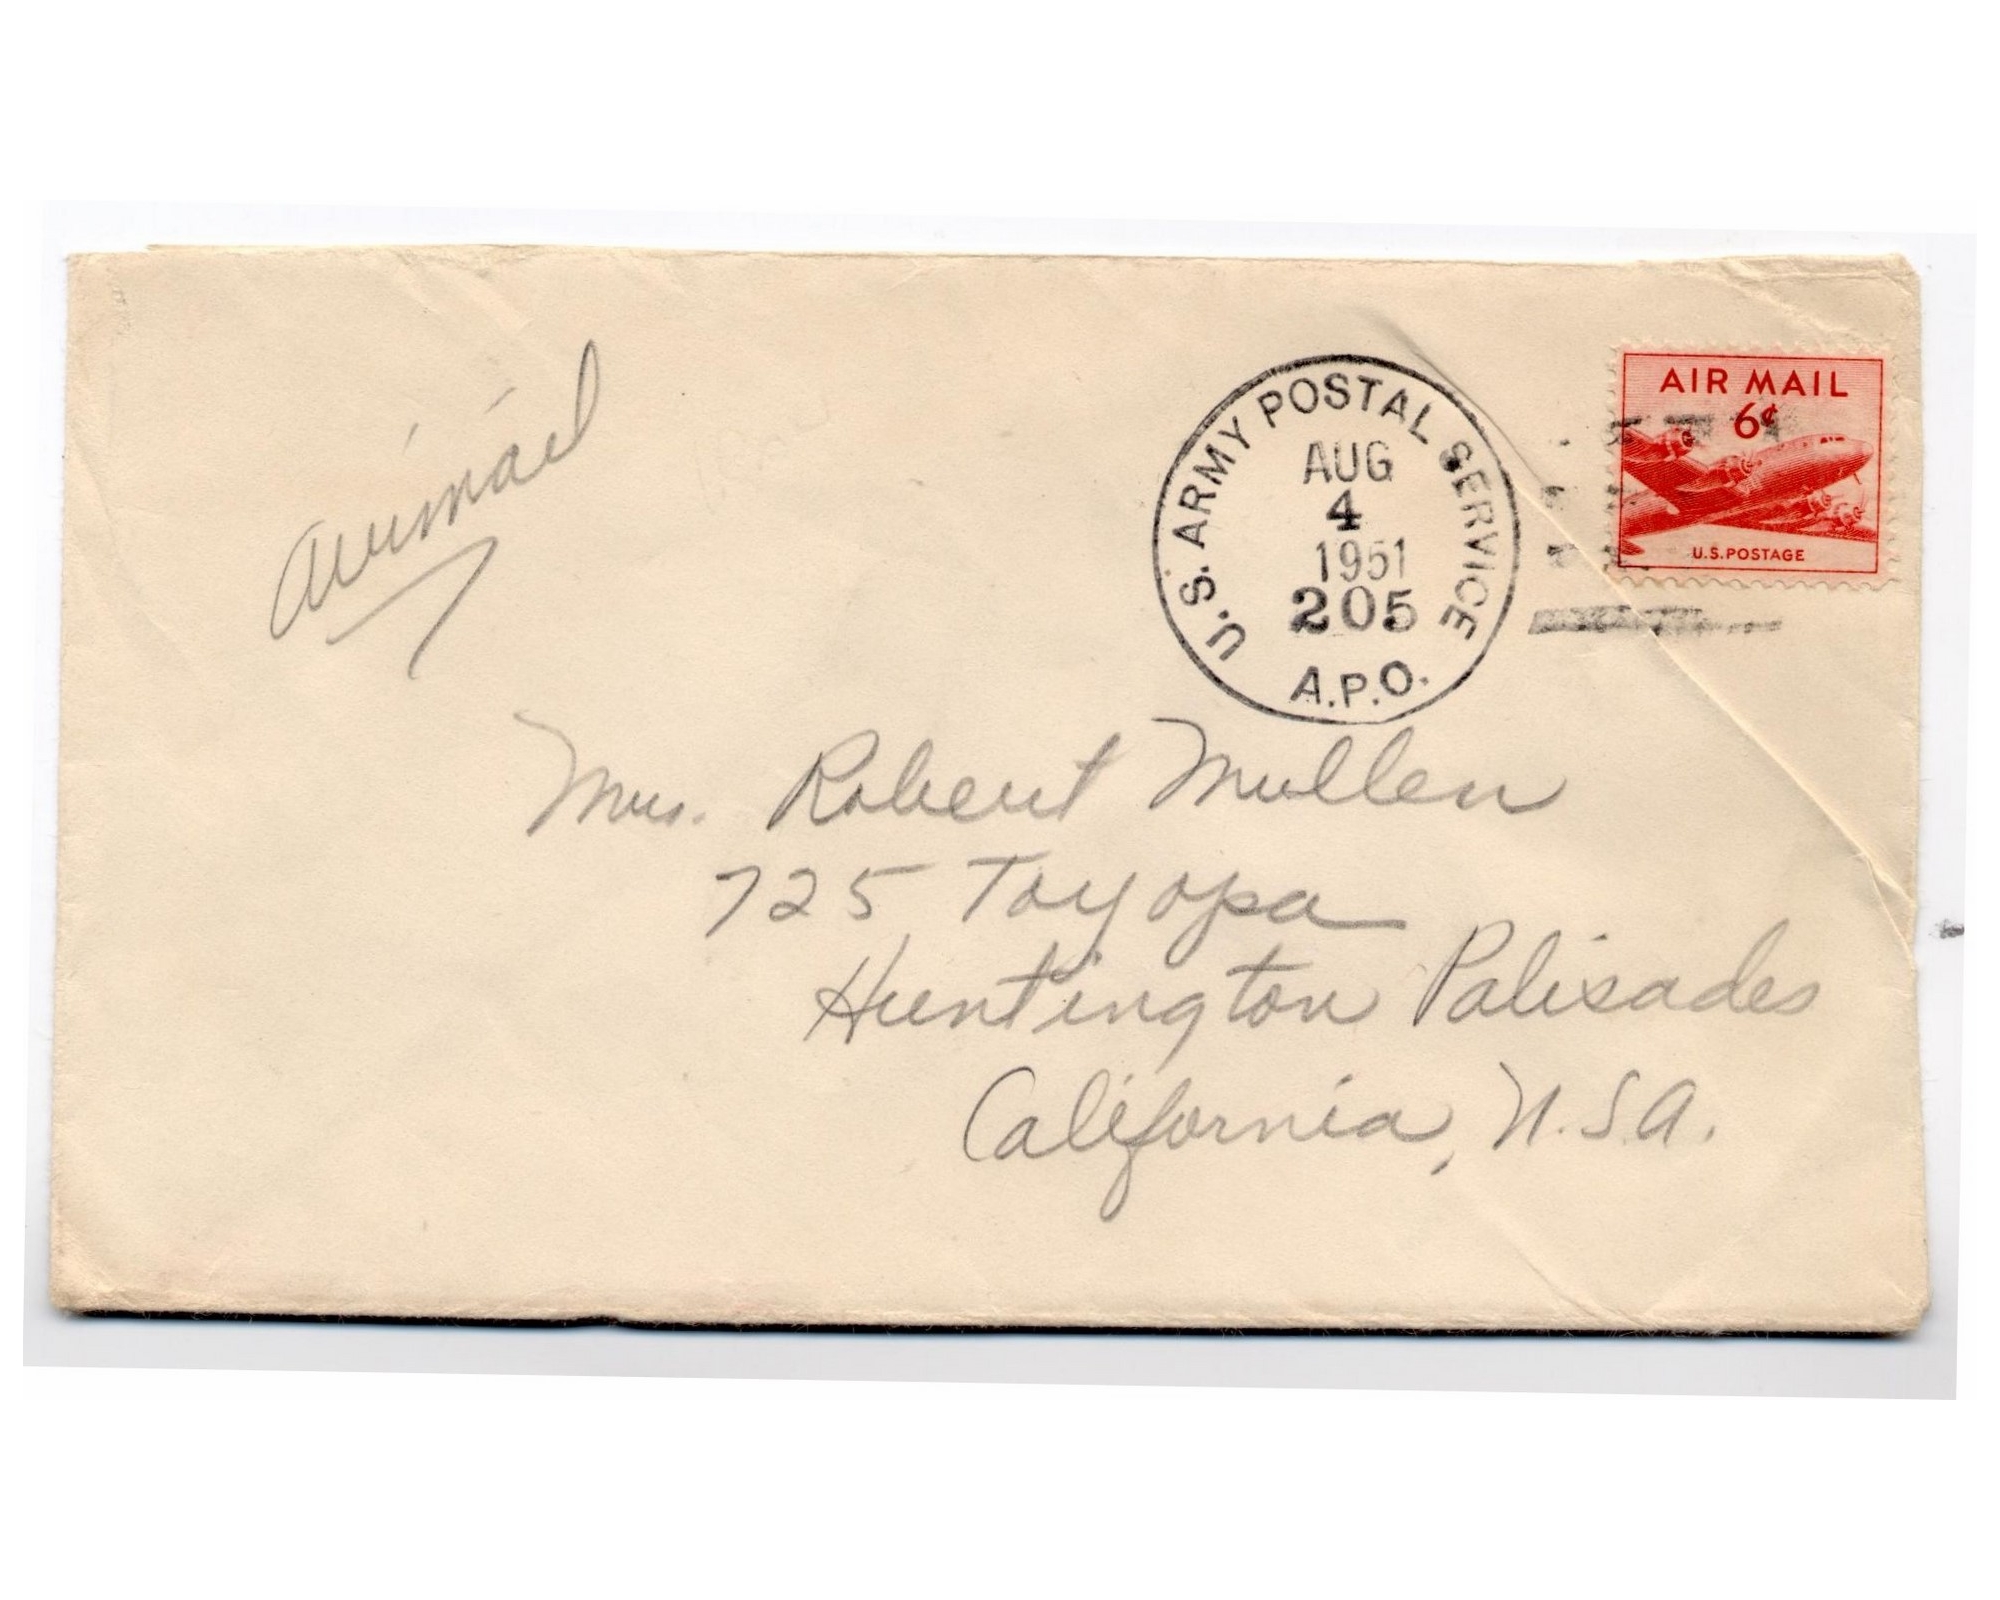 airmail
U.S. ARMY POSTAL SERVICE
AUG
4
1951
205
A.P.O.
AIR MAIL
6¢
U.S. POSTAGE
Mrs. Robert Mullen
725 Toyopa
Huntington Palisades
California, U.S.A.